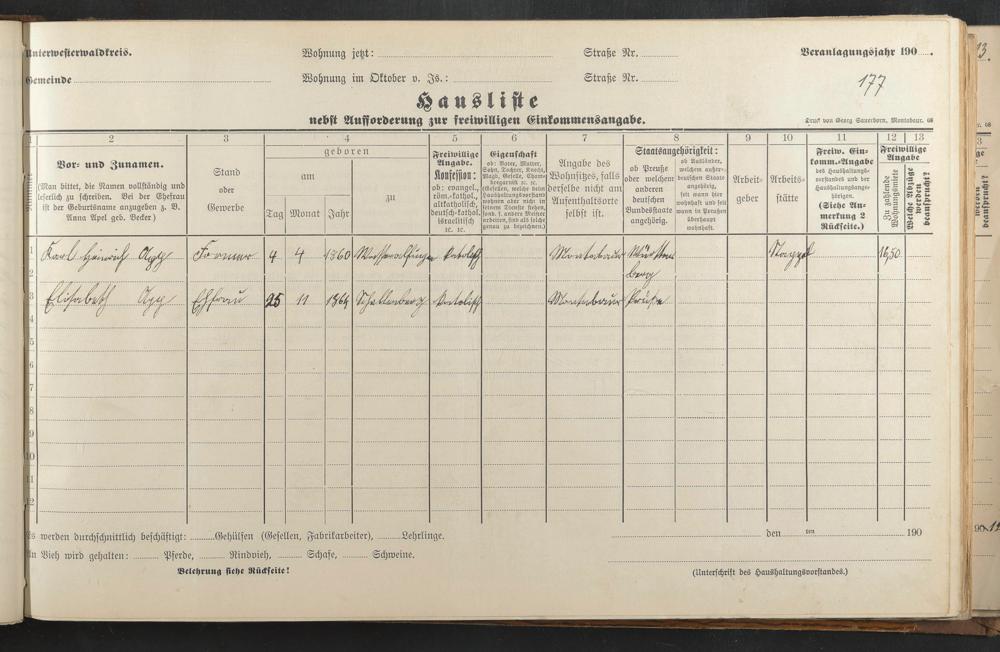 Unterwesterwaldkreis. Wohnung jetzt: Straße Nr. Veranlagungsjahr 190 .
Gemeinde Wohnung im Oktober v. Js.: Straße Nr. 177
Hausliste
nebst Aufforderung zur freiwilligen Einkommensangabe.
Druck von Georg Sauerborn, Montabaur. 68
1 2 3 4 5 6 7 8 9 10 11 12 13
Vor- und Zunamen.
(Man bittet, die Namen vollständig und
leserlich zu schreiben. Bei der Ehefrau
ist der Geburtsname anzugeben z. B.
Anna Apel geb. Becker)
Stand
oder
Gewerbe
geboren
am
zu
Tag Monat Jahr
Freiwillige
Angabe.
Konfession:
ob: evangel.,
röm.-kathol.,
altkatholisch,
deutsch-kathol.
israelitisch
ic. ic.
Eigenschaft
ob: Vater, Mutter,
Sohn, Tochter, Knecht,
Magd, Geselle, Chambregarnist ic. ic.
(Gesellen, welche beim
Haushaltungsvorstand
wohnen aber nicht in
seinem Dienste stehen,
sond. f. andere Meister
arbeiten, sind als solche
genau zu bezeichnen.)
Angabe des
Wohnsitzes, falls
derselbe nicht am
Aufenthaltsorte
selbst ist.
Staatsangehörigkeit:
ob Preuße
oder welchem
anderen
deutschen
Bundesstaate
angehörig.
ob Ausländer,
welchem außerdeutschen Staate
angehörig,
seit wann hier
wohnhaft und seit
wann in Preußen
überhaupt
wohnhaft.
Arbeitgeber
Arbeitsstätte
Freiw. Einkomm.-Angabe
des Haushaltungsvorstandes und der
Haushaltungsangehörigen.
(Siehe Anmerkung 2
Rückseite.)
Freiwillige
Angabe
Zu zahlende
Wohnungsmiete
Welche Abzüge
werden
beansprucht?
1 Karl Heinrich App Former 4 4 1860 Wasseralfingen katolisch Montabaur Württemberg 16,50
2
3 Elisabeth App Ehfrau 25 11 1864 katolisch Montabaur Preuße
4
5
6
7
8
9
10
11
12
Es werden durchschnittlich beschäftigt: Gehülfen (Gesellen, Fabrikarbeiter), Lehrlinge.
An Vieh wird gehalten: Pferde, Rindvieh, Schafe, Schweine.
Belehrung siehe Rückseite!
den ten 190
(Unterschrift des Haushaltungsvorstandes.)